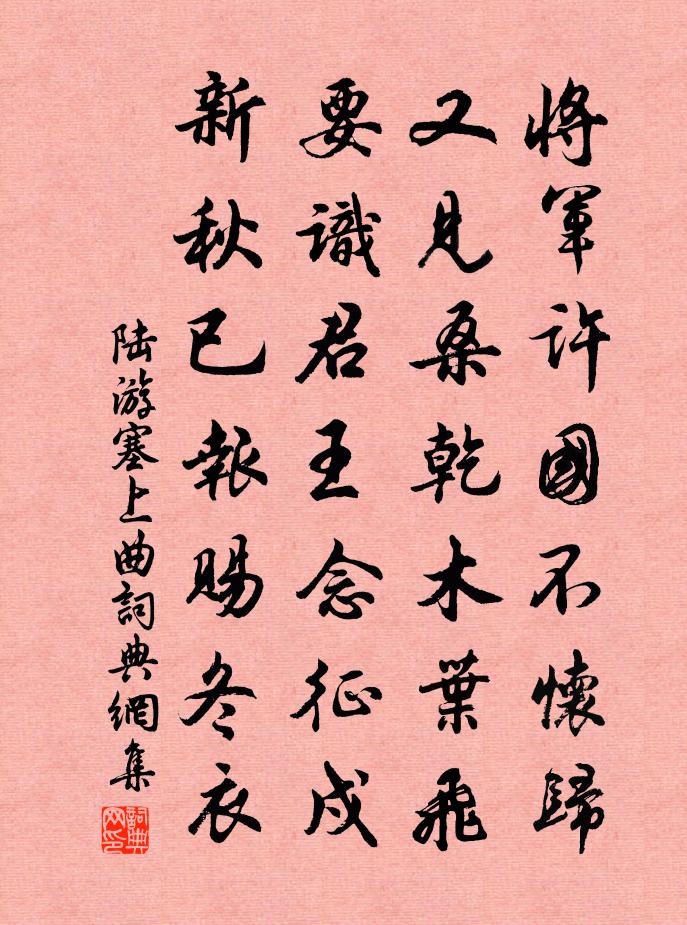 將軍許國不懷歸
又見桑乾木葉飛
要識君王念征戍
新秋已報賜冬衣
陆游塞上曲詞典網集
詞典网印